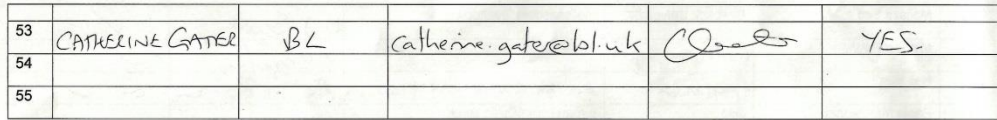 53 CATHERINE GATER BL catherine.gater@bl.uk YES.
54
55